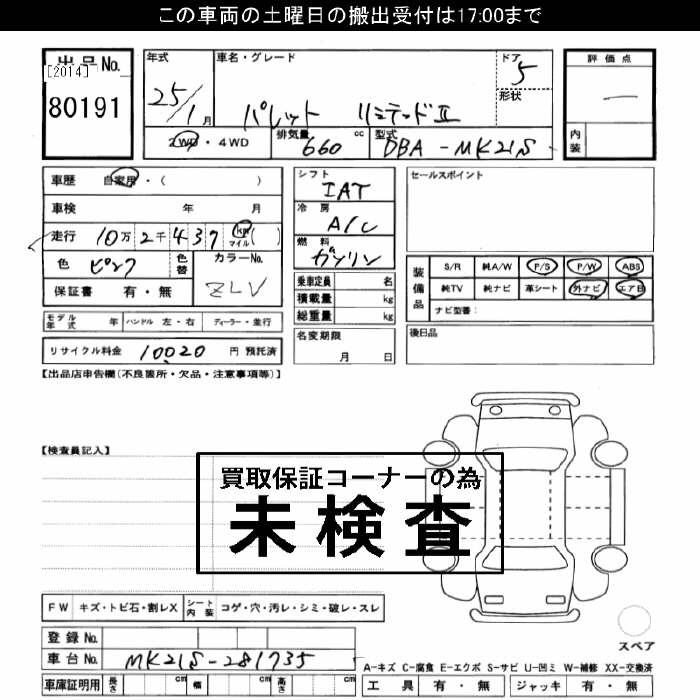 この車両の土曜日の搬出受付は17:00まで
出品No.
[2014]
80191
年式
25/1月
車名・グレード
パレット リミテッドⅡ
ドア
5
形状
2WD・4WD
排気量
660 cc
型式
DBA-MK21S
評価点
―
内装
車歴 自家用・( )
車検 年 月
走行 10万2千437 km マイル ( )
色 ピンク
色替
カラーNo.
ZLV
保証書 有・無
モデル年式 年
ハンドル 左・右
ディーラー・並行
リサイクル料金 10020 円 預託済
シフト
IAT
冷房
A/C
燃料
ガソリン
乗車定員 名
積載量 kg
総重量 kg
名変期限
月 日
セールスポイント
装備品
S/R 純A/W P/S P/W ABS
純TV 純ナビ 革シート 外ナビ エアB
ナビ型番:
後日品
【出品店申告欄(不良箇所・欠品・注意事項等)】
【検査員記入】
買取保証コーナーの為
未検査
FW キズ・トビ石・割レX
シート内装 コゲ・穴・汚レ・シミ・破レ・スレ
登録No.
車台No. MK21S-281735
車庫証明用 長さ cm 幅 cm 高さ cm
スペア
A-キズ C-腐食 E-エクボ S-サビ U-凹ミ W-補修 XX-交換済
工具 有・無 ジャッキ 有・無